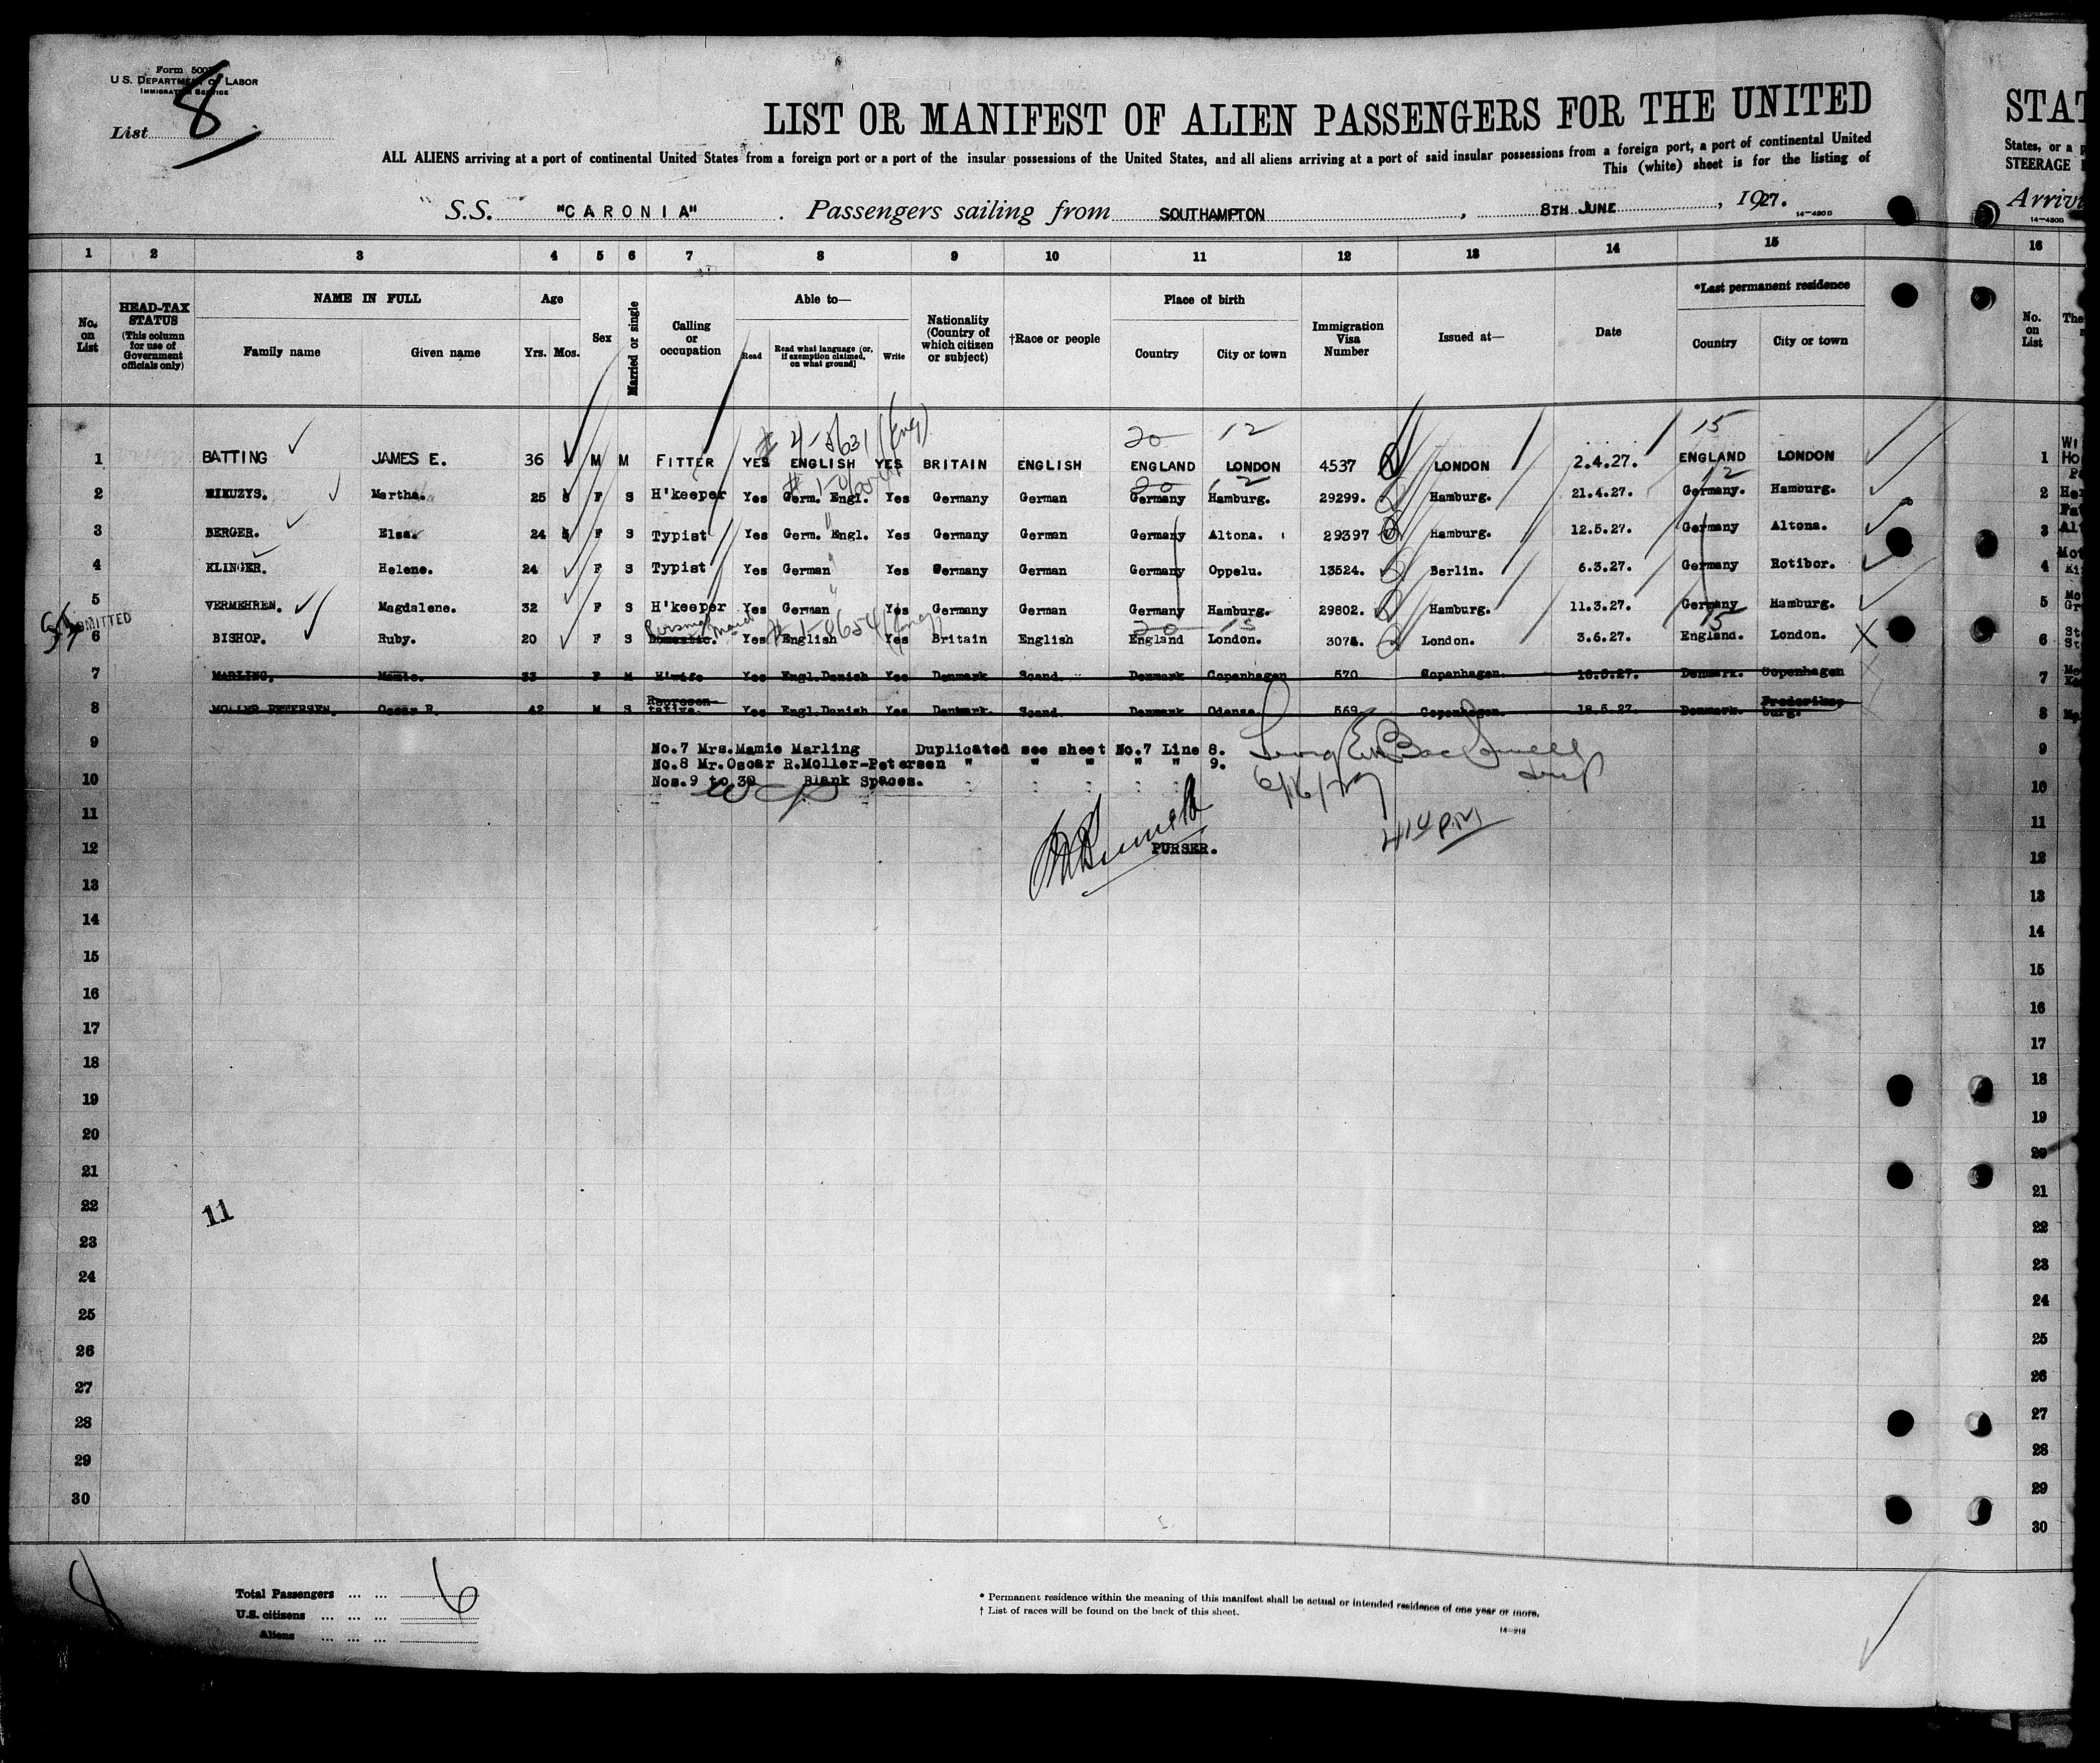 Form 500
U.S. DEPARTMENT OF LABOR
IMMIGRATION SERVICE
List 8
LIST OR MANIFEST OF ALIEN PASSENGERS FOR THE UNITED
STAT
ALL ALIENS arriving at a port of continental United States from a foreign port or a port of the insular possessions of the United States, and all aliens arriving at a port of said insular possessions from a foreign port, a port of continental United
States, or a p
This (white) sheet is for the listing of
STEERAGE
S.S. "CARONIA" . Passengers sailing from SOUTHAMPTON , 8TH JUNE , 1927.
Arriv
14-480B
14-480B
1 2 3 4 5 6 7 8 9 10 11 12 13 14 15 16
No. on List
HEAD-TAX STATUS
(This column for use of Government officials only)
NAME IN FULL
Family name
Given name
Age
Yrs. Mos.
Sex
Married or single
Calling or occupation
Able to—
Read
Read what language (or, if exemption claimed, on what ground)
Write
Nationality (Country of which citizen or subject)
†Race or people
Place of birth
Country
City or town
Immigration Visa Number
Issued at—
Date
*Last permanent residence
Country
City or town
No. on List
The
# 4-8631 (Eng) 20 12 15
1 BATTING JAMES E. 36 M M FITTER YES ENGLISH YES BRITAIN ENGLISH ENGLAND LONDON 4537 LONDON 2.4.27. ENGLAND LONDON 1
2 Martha. 25 F S H'keeper Yes Germ. Engl. Yes Germany German Germany Hamburg. 29299. Hamburg. 21.4.27. Germany. Hamburg. 2
3 BERGER. Elsa. 24 F S Typist Yes Germ. Engl. Yes Germany German Germany Altona. 29397 Hamburg. 12.5.27. Germany Altona. 3
4 KLINGER. Helene. 24 F S Typist Yes German " Yes Germany German Germany Oppelu. 13524. Berlin. 6.3.27. Germany Rotibor. 4
5 VERMEHREN. Magdalene. 32 F S H'keeper Yes German " Yes Germany German Germany Hamburg. 29802. Hamburg. 11.3.27. Germany Hamburg. 5
ADMITTED
Maid 20 15 15
6 BISHOP. Ruby. 20 F S Domestic. Yes English Yes Britain English England London. London. 3.6.27. England. London. X 6
7 MARLING. Mamie. 33 F M H'wife Yes Engl.Danish Yes Denmark Scand. Denmark Copenhagen 570 Copenhagen. Denmark. Copenhagen 7
8 MOLLER PETERSEN. Oscar R. 42 M S Representative. Yes Engl.Danish Yes Denmark Scand Denmark Odense. 569 Copenhagen. 18.5.27. Denmark. 8
9 No.7 Mrs.Mamie Marling Duplicated see sheet No.7 Line 8. 9
No.8 Mr.Oscar R.Moller-Petersen " " " " " 9.
10 Nos.9 to 30 Blank Spaces. 6/16/27 10
11 11
12 PURSER. 414 P.M 12
13 13
14 14
15 15
16 16
17 17
18 18
19 19
20 20
21 21
22 11 22
23 23
24 24
25 25
26 26
27 27
28 28
29 29
30 30
Total Passengers ... ... 6
U.S. citizens ... ... ...
Aliens ... ... ...
* Permanent residence within the meaning of this manifest shall be actual or intended residence of one year or more.
† List of races will be found on the back of this sheet.